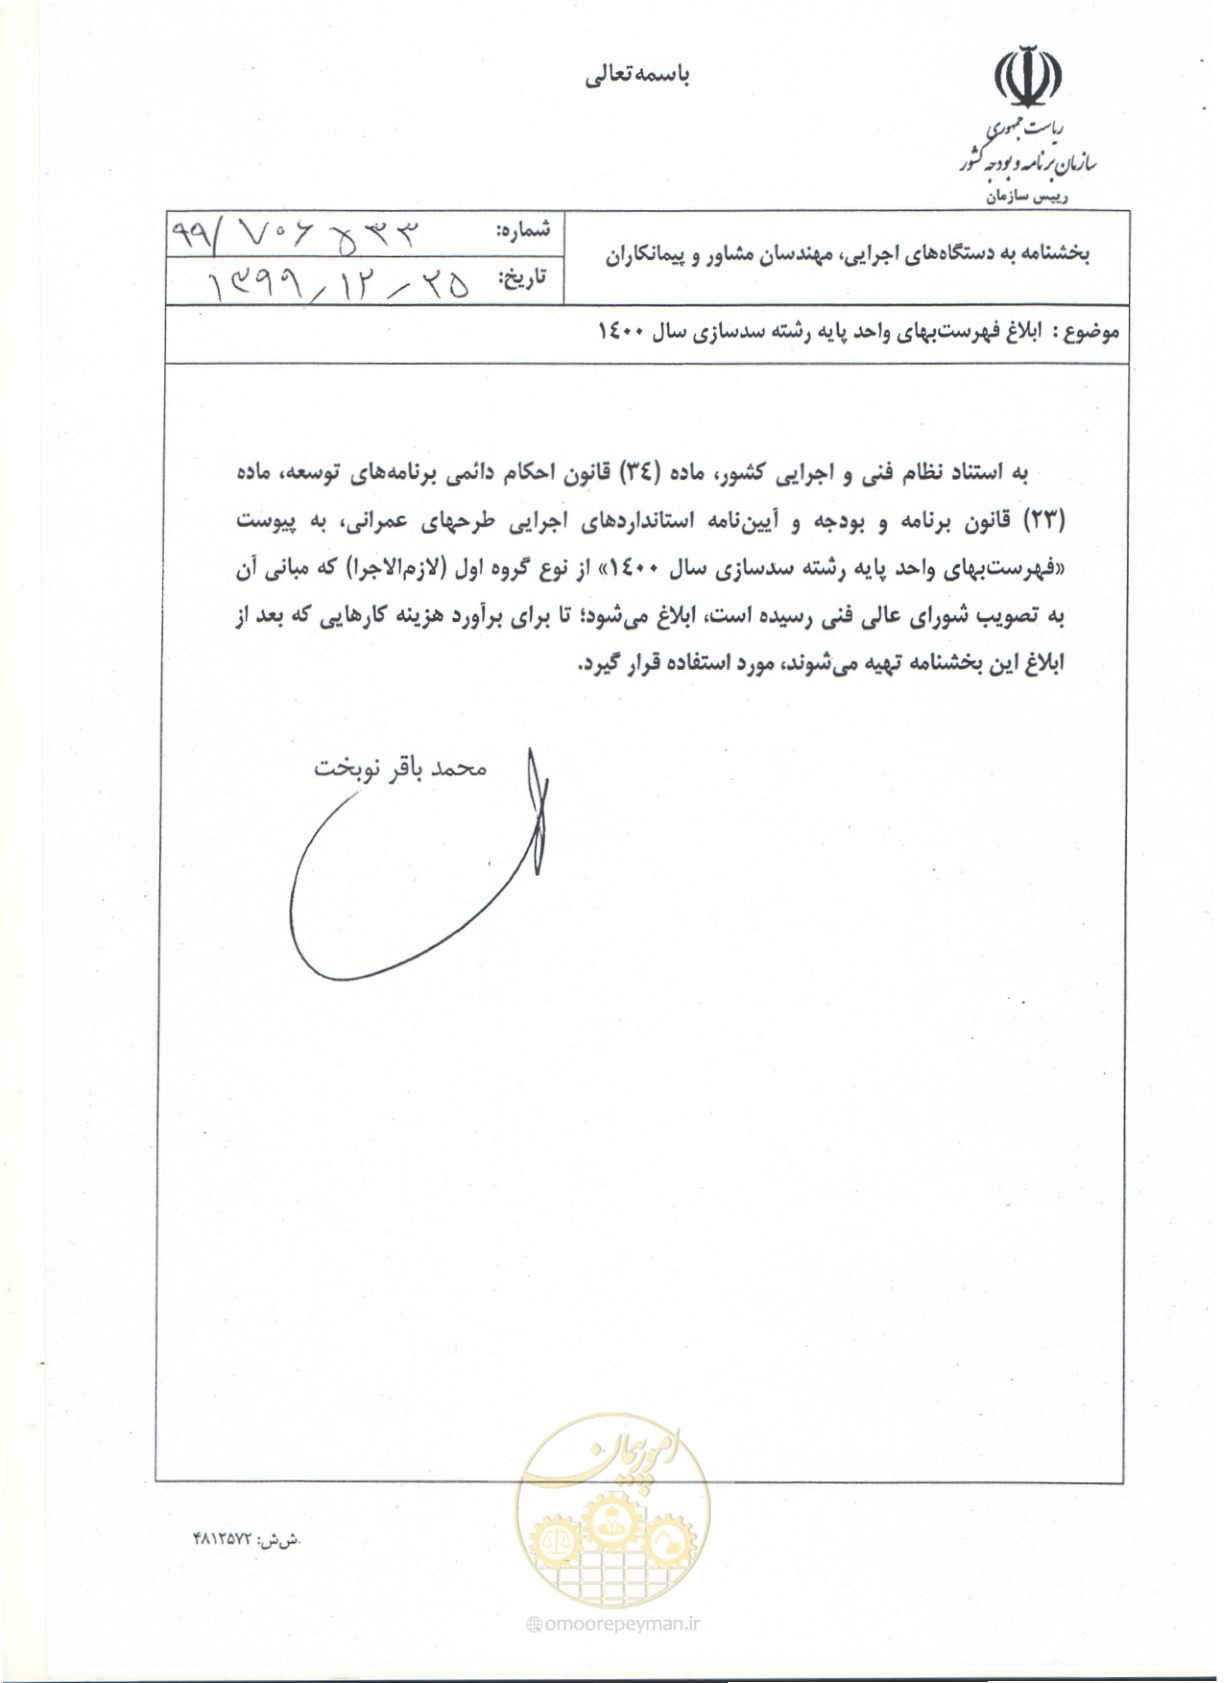 باسمه تعالی
ریاست جمهوری
سازمان برنامه و بودجه کشور
رییس سازمان
بخشنامه به دستگاه‌های اجرایی، مهندسان مشاور و پیمانکاران
شماره: ۹۹/۷۰۶۵۳۳
تاریخ: ۱۳۹۹/۱۲/۲۵
موضوع : ابلاغ فهرست‌بهای واحد پایه رشته سدسازی سال ۱٤۰۰
به استناد نظام فنی و اجرایی کشور، ماده (۳٤) قانون احکام دائمی برنامه‌های توسعه، ماده
(۲۳) قانون برنامه و بودجه و آیین‌نامه استانداردهای اجرایی طرحهای عمرانی، به پیوست
«فهرست‌بهای واحد پایه رشته سدسازی سال ۱٤۰۰» از نوع گروه اول (لازم‌الاجرا) که مبانی آن
به تصویب شورای عالی فنی رسیده است، ابلاغ می‌شود؛ تا برای برآورد هزینه کارهایی که بعد از
ابلاغ این بخشنامه تهیه می‌شوند، مورد استفاده قرار گیرد.
محمد باقر نوبخت
امور پیمان
ش‌ش: ۴۸۱۲۵۷۲
omoorepeyman.ir